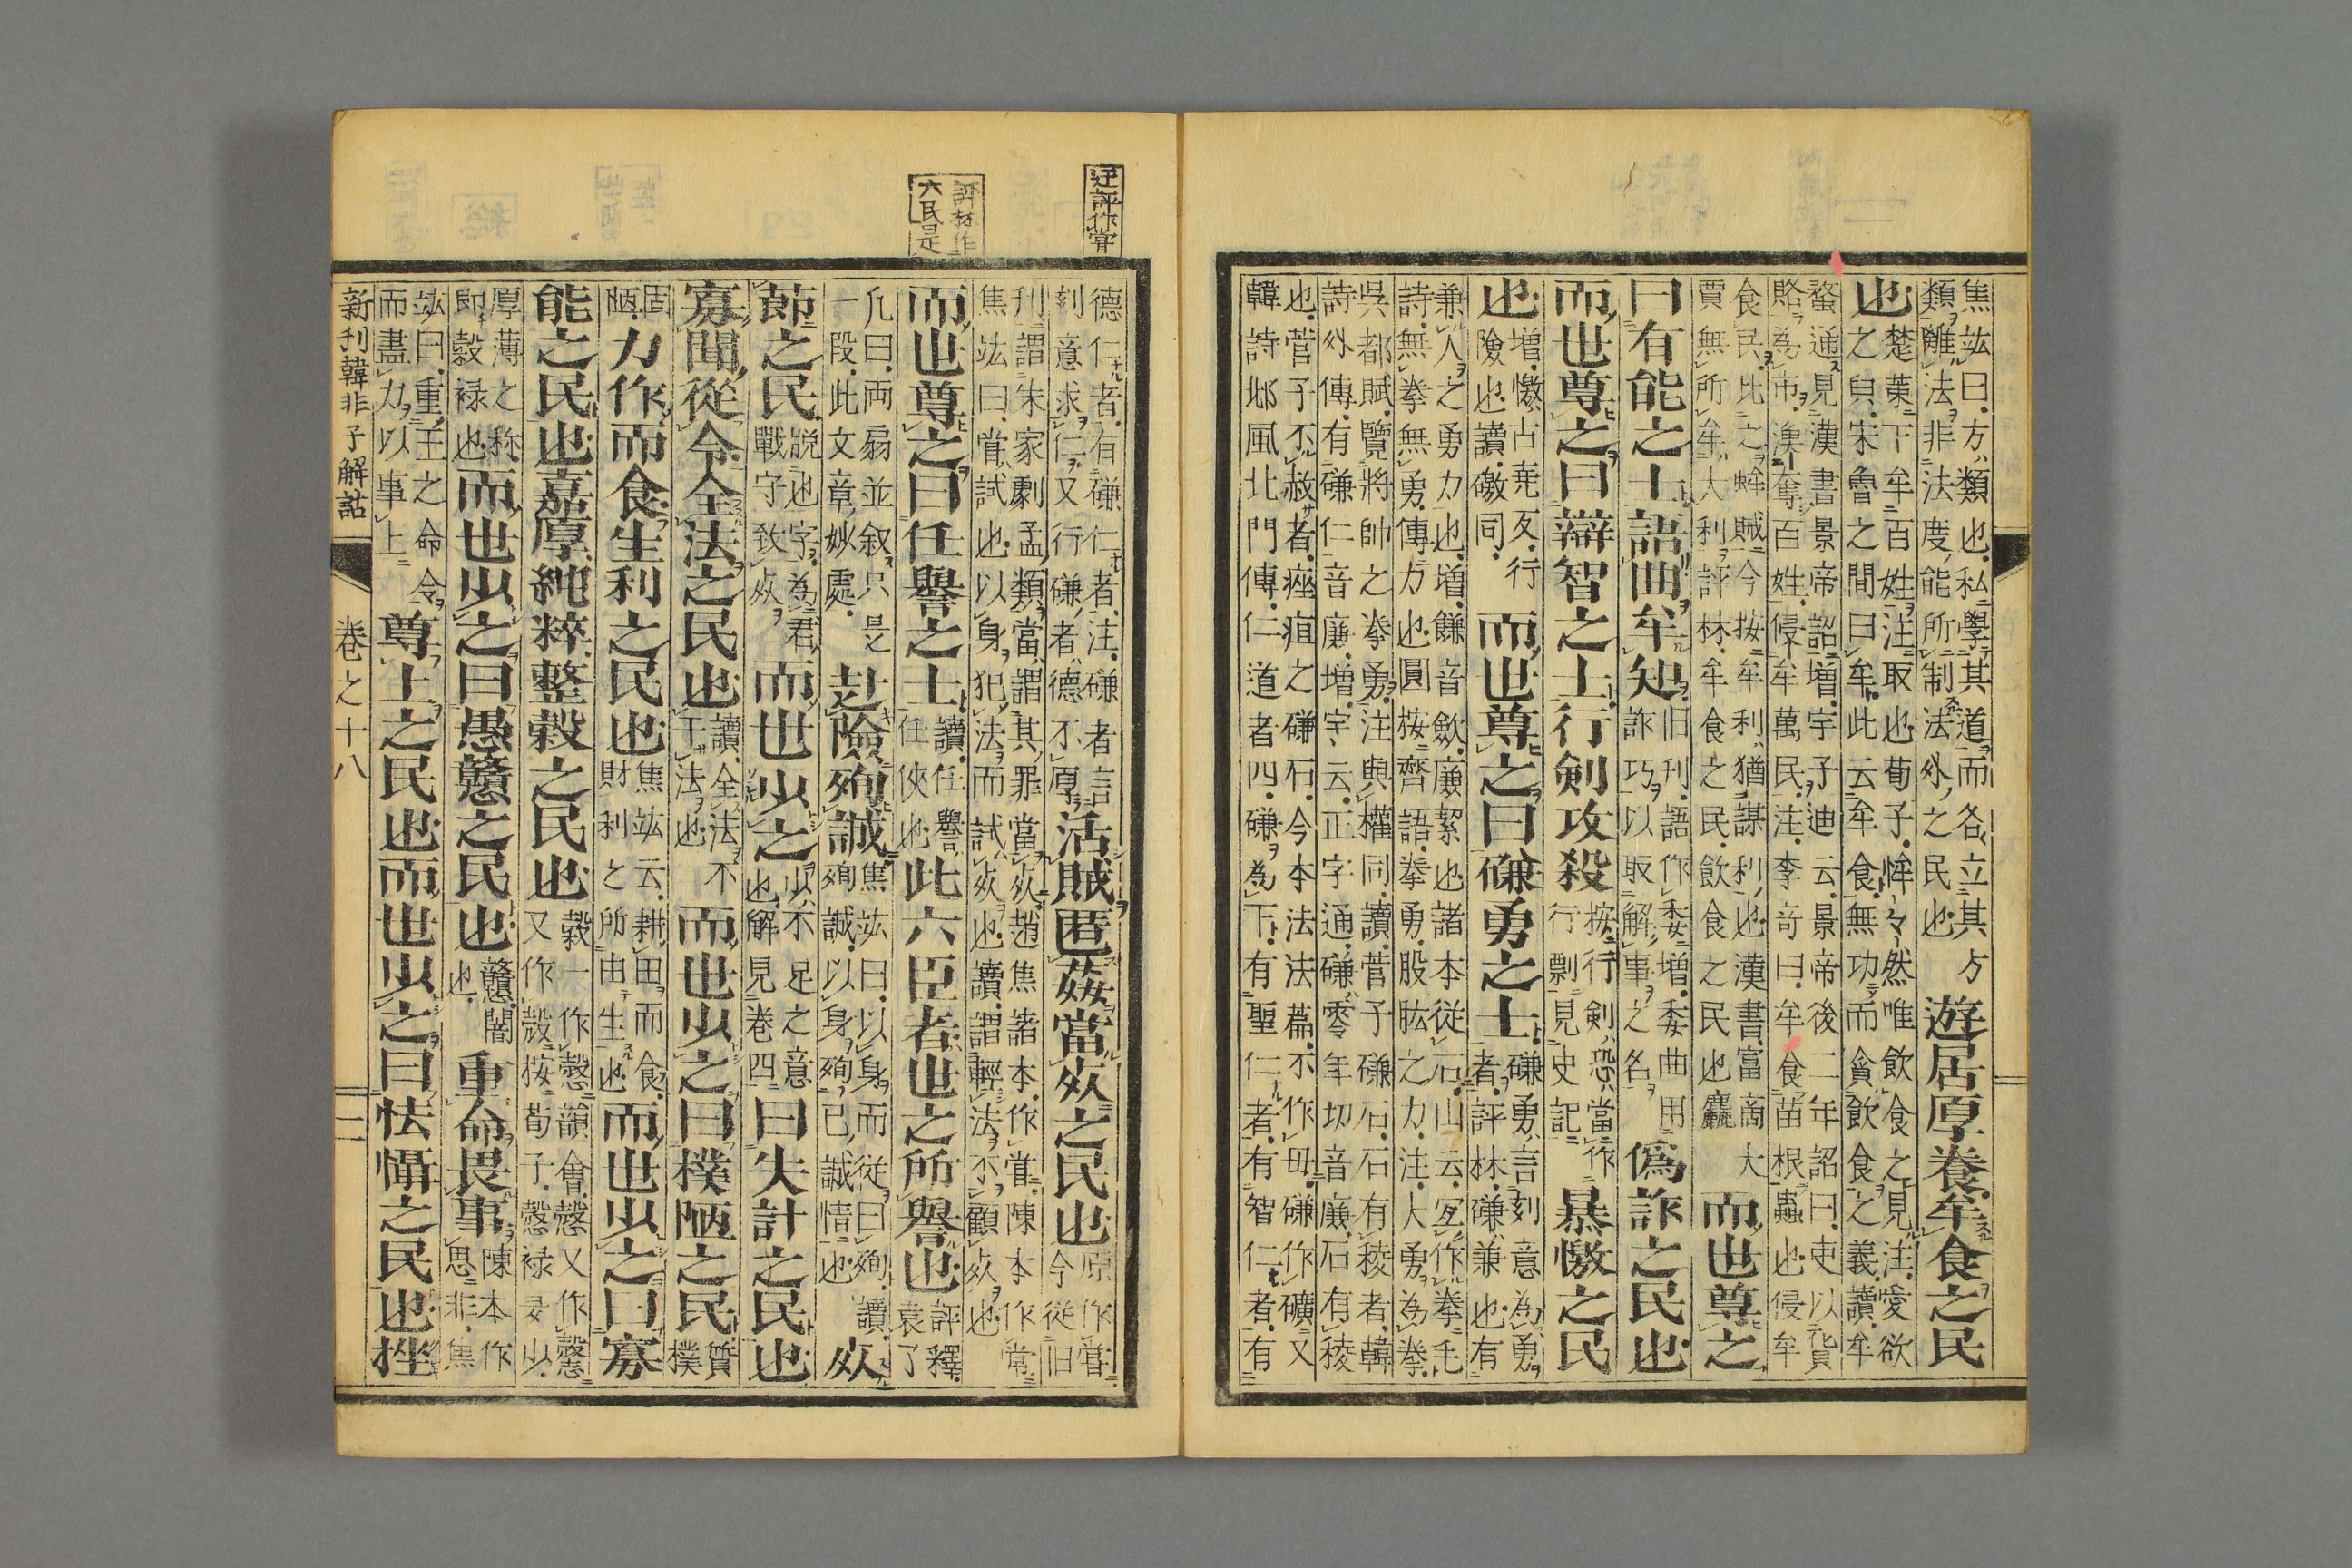 焦竑曰方類也私學其道而各立其方
類離法非法度能所制法外之民也
遊居厚養牟食之民
也
楚策下牟百姓注取也荀子恈恈然唯飲食之見注愛欲
之皃宋魯之間曰牟此云牟食無功而貪飲食之義讀牟
蝥通見漢書景帝詔増宇子迪云景帝後二年詔曰吏以貨
賂為市漁奪百姓侵牟萬民注李奇曰牟食苗根蟲也侵牟
食民比之蛑賊今按牟利猶謀利也漢書富商大
賈無所牟大利評林牟食之民飲食之民也麤
而世尊之
曰有能之士語曲牟知
旧刊語作委増委曲用
詐巧以取解事之名
偽詐之民也
而世尊之曰辯智之士行劍攻殺
按行劍恐當作
行剽見史記
暴憿之民
也
増憿古堯反行
險也讀礉同
而世尊之曰磏勇之士
磏勇言刻意為勇
者評林磏兼也有
兼人之勇力也増鎌音歛廉絜也諸本従石山云䆛作拳毛
詩無拳無勇傳力也圓按齊語拳勇股肱之力注大勇為拳
呉都賦覽將帥之拳勇注與權同讀菅子磏石石有稜者韓
詩外傳有磏仁音廉増宇云正字通磏零年切音廉石有稜
也菅子不赦者痤疽之磏石今本法法篇不作毋磏作礦又
韓詩邶風北門傳仁道者四磏為下有聖仁者有智仁者有
迂評作當
評林作
六民是
德仁者有磏仁者注磏者言
刻意求仁又行磏者德不厚
活賊匿姦當灰之民也
原作當
今従旧
刊謂朱家劇孟類當謂其罪當灰趙焦諸本作當陳本作常
焦竑曰當試也以身犯法而試灰也讀謂輕法不顧灰也
而世尊之曰任譽之士
讀任譽
任俠也
此六臣者世之所譽也
評釋
袁了
凡曰両扇並叙只是
一段此文章妙處
赴險殉誠
焦竑曰以身而従曰殉讀
殉誠以身殉已誠情也
灰
節之民
説也字為君
戰守致灰
而世少之
少不足之意
也解見巻四
曰失計之民也
寡聞從令全法之民也
讀全法不
干法也
而世少之曰樸陋之民
質
樸
固
陋
力作而食生利之民也
焦竑云耕田而食
財利之所由生也
而世少之曰寡
能之民也嘉厚純粹整穀之民也
穀一作愨韻會愨又作慤
又作殻按荀子愨禄是以
厚薄之称
即穀禄也
而世少之曰愚戇之民也
戇闇
也
重命畏事
陳本作
思非焦
竑曰重王之命令
而盡力以事上
尊上之民也而世少之曰怯懾之民也挫
新刊韓非子解詁　巻之十八　二